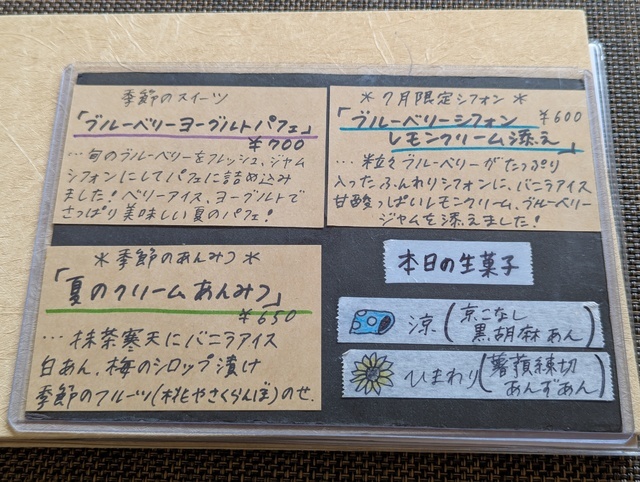 季節のスイーツ
「ブルーベリーヨーグルトパフェ」
¥700
…旬のブルーベリーをフレッシュ、ジャム
シフォンにしてパフェに詰め込み
ました!ベリーアイス、ヨーグルトで
さっぱり美味しい夏のパフェ!
＊7月限定シフォン＊
「ブルーベリーシフォン ¥600
レモンクリーム添え」
…粒々ブルーベリーがたっぷり
入ったふんわりシフォンに、バニラアイス
甘酸っぱいレモンクリーム、ブルーベリー
ジャムを添えました!
＊季節のあんみつ＊
「夏のクリームあんみつ」
¥650
…抹茶寒天にバニラアイス
白あん、梅のシロップ漬け
季節のフルーツ(桃やさくらんぼ)のせ.
本日の生菓子
涼(京こなし
黒胡麻あん)
ひまわり(薯蕷練切
あんずあん)